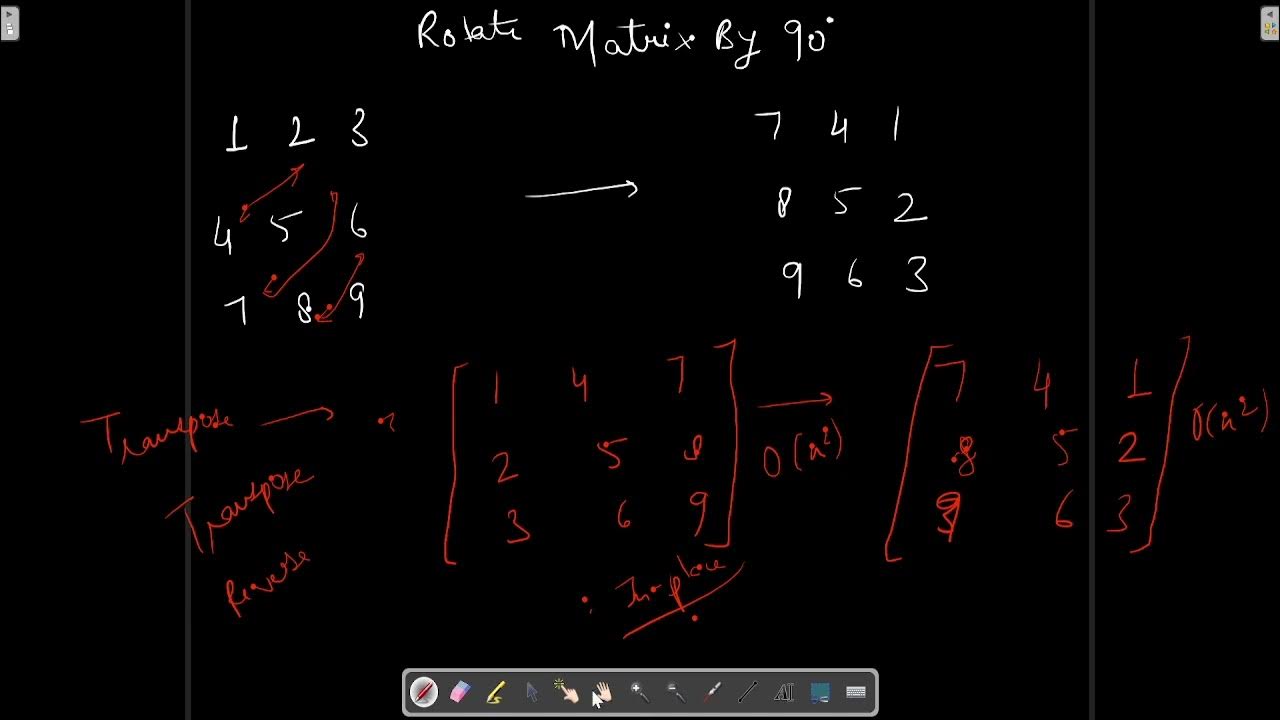 Rotate Matrix By 90°
1 2 3
4 5 6
7 8 9
7 4 1
8 5 2
9 6 3
Transpose
Transpose
Reverse
1 4 7
2 5 8
3 6 9
O(n²)
7 4 1
8 5 2
9 6 3
O(n²)
In-place
AI